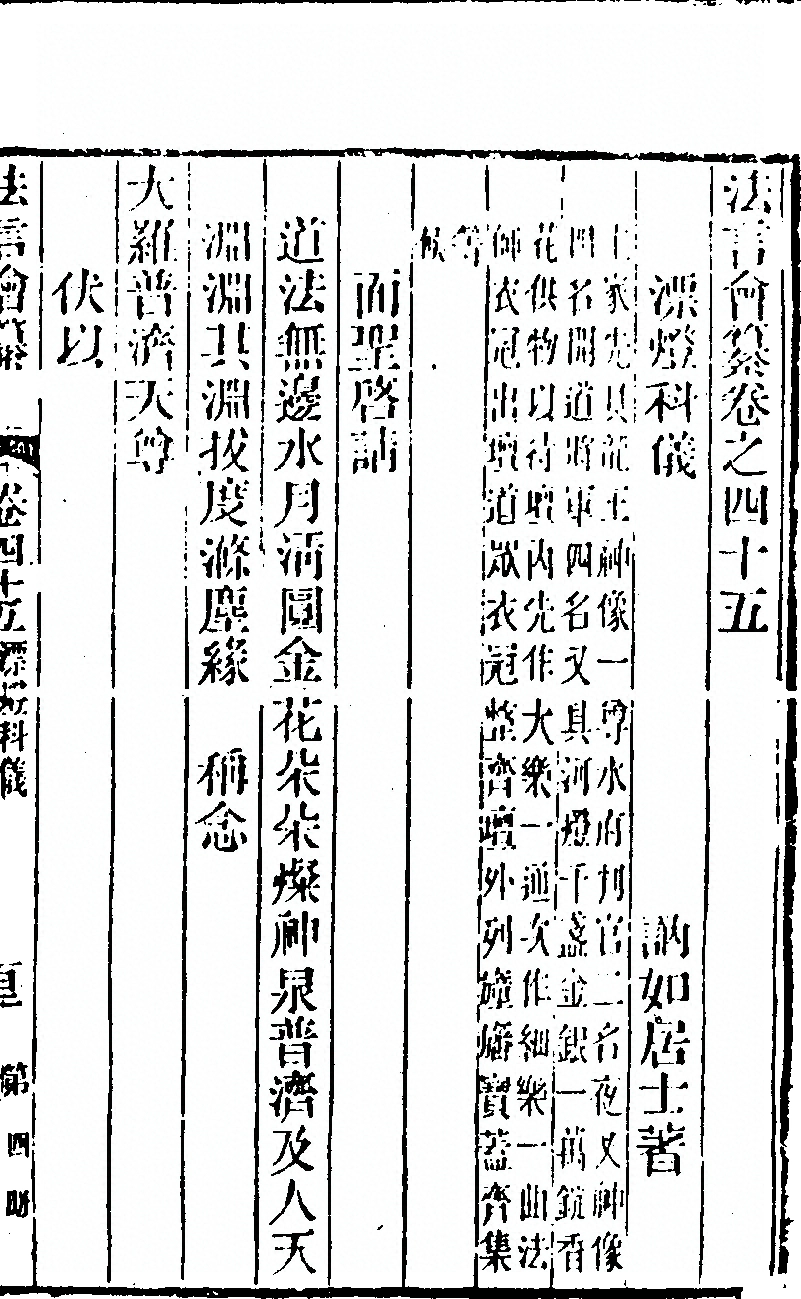 法言會纂卷之四十五
漂燈科儀
訥如居士著
主家先具龍王神像一尊水府判官二名夜叉神像
四名開道將軍四名又具河燈千盞金銀一萬錠香
花供物以待壇內先作大樂一通次作細樂一曲法
師衣冠出壇道眾衣冠整齊壇外列幢旛寶蓋齊集
等
候
面聖啓請
道法無邊水月清圓金花朵朵燦神泉普濟及人天
淵淵其淵拔度滌塵緣 稱念
大羅普濟天尊
伏以
法言會纂 卷四十五 漂燈科儀 第四